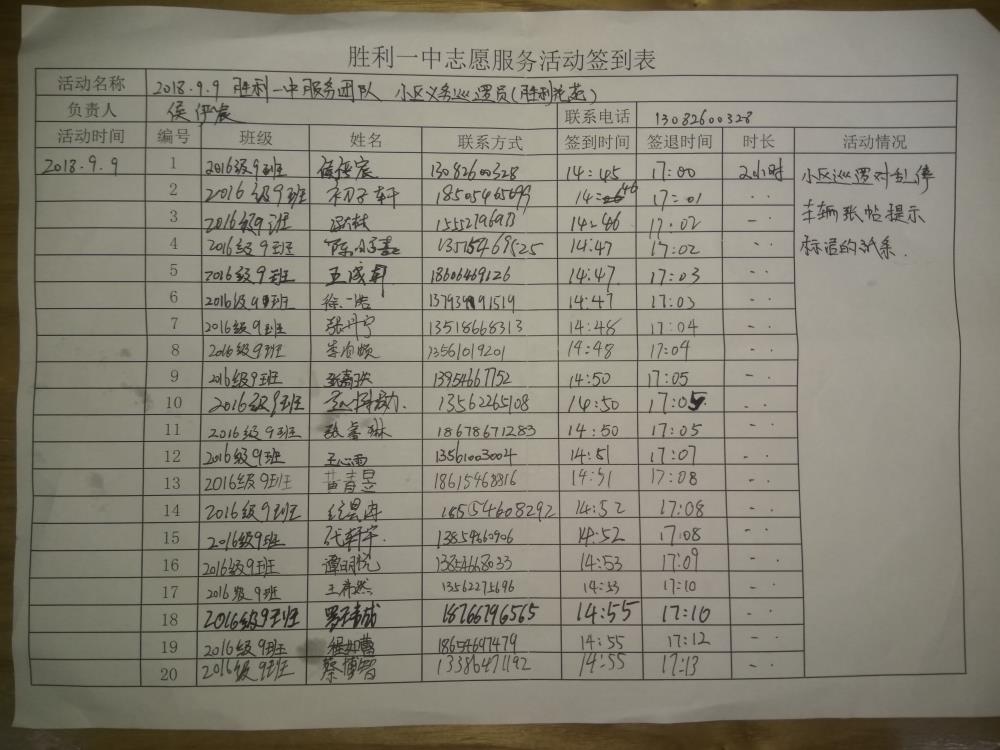 胜利一中志愿服务活动签到表
活动名称 2018.9.9 胜利一中服务团队 小区义务巡逻员(胜利花苑)
负责人 侯 宸 联系电话 13082600328
活动时间 编号 班级 姓名 联系方式 签到时间 签退时间 时长 活动情况
2018.9.9 1 2016级9班 宸 13082600328 14:45 17:00 2小时 小区巡逻对乱停
2 2016级9班 子轩 14:46 17:01 - · 车辆张帖提示
3 2016级9班 14:46 17:02 - · 标语的

4 2016级9班 陈 13515469525 14:47 17:02 - ·
5 2016级9班 18606469126 14:47 17:03 - ·
6 2016级9班 徐一浩 14:47 17:03 - ·
7 2016级9班 张丹宁 13518668313 14:48 17:04 - ·
8 2016级9班 李 13561019201 14:48 17:04 - ·
9 2016级9班 13954667752 14:50 17:05 - ·
10 2016级9班 13562265108 14:50 17:05 - ·
11 2016级9班 张睿琳 18678671283 14:50 17:05 - ·
12 2016级9班 王心雨 13561003004 14:51 17:07 - ·
13 2016级9班 苗青昱 18615468816 14:51 17:08 - ·
14 2016级9班 15554608292 14:52 17:08 - ·
15 2016级9班 代轩宇 13854660906 14:52 17:08 - ·
16 2016级9班 谭明悦 13854668033 14:53 17:09 - ·
17 2016级9班 王 然 13562275696 14:53 17:10 - ·
18 2016级9班 18766796565 14:55 17:10 - ·
19 2016级9班 程如蕾 18654697479 14:55 17:12 - ·
20 2016级9班 蔡博智 13386471192 14:55 17:13 - ·